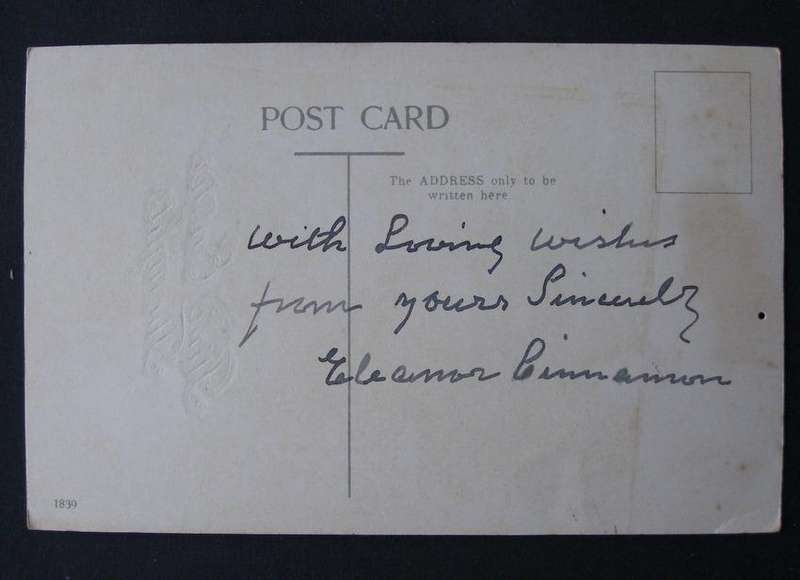 POST CARD
The ADDRESS only to be
written here
With Loving Wishes
from yours Sincerely
Eleanor Cinnamon
1839